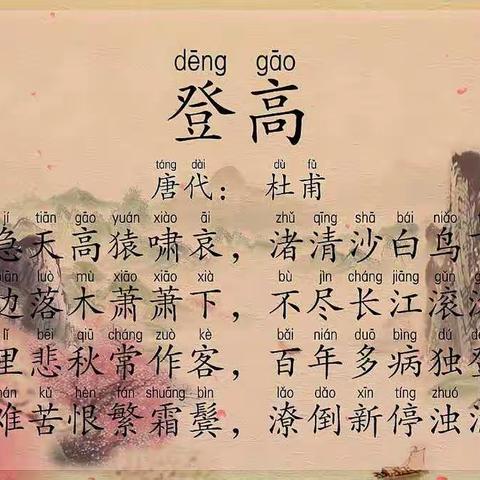 dēng gāo
登高
táng dài dù fǔ
唐代: 杜甫
jí tiān gāo yuán xiào āi zhǔ qīng shā bái niǎo
急天高猿啸哀,渚清沙白鸟
luò mù xiāo xiāo xià bù jìn cháng jiāng gǔn
边落木萧萧下,不尽长江滚
lǐ bēi qiū cháng zuò kè bǎi nián duō bìng dú
里悲秋常作客,百年多病独登
kǔ hèn fán shuāng bìn lǎo dǎo xīn tíng zhuó
难苦恨繁霜鬓,潦倒新停浊